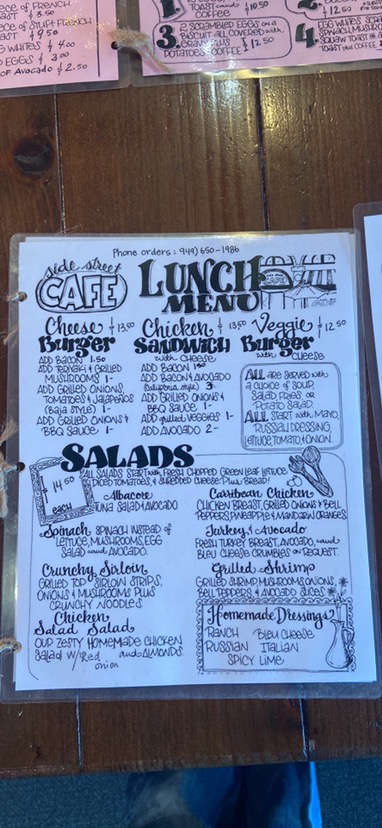 ECE OF FRENCH
AST $ 3.50
ECE OF STUFT FRENCH
AST $ 9.50
G WHITES $ 4.00
D EGGS $ 3.00
OF AVOCADO $ 2.50
TOAST and
COFFEE $ 10.50
3. 2 SCRAMBLED EGGS ON A
BISCUIT ALL COVERED WITH
GRAVY PLUS
POTATOES. COFFEE $ 12.50
4. EGG WHITES
SPINACH, MUSHRO
SQUAW TOAST
TOAST PLUS COFFEE
Phone orders: 949) 650-1986
side street
CAFE
LUNCH
MENU
Cheese $ 13.50
Burger
ADD BACON 1.50
ADD TERIYAKI & GRILLED
MUSHROOMS 1-
ADD GRILLED ONIONS,
TOMATOES & JALAPEÑOS
(BAJA STYLE) 1-
ADD GRILLED ONIONS &
BBQ SAUCE 1-
Chicken $ 13.50
SANDWICH
with CHEESE
ADD BACON 1.50
ADD BACON & AVOCADO
(California style) 3-
ADD GRILLED ONIONS &
BBQ SAUCE 1-
ADD grilled VEGGIES 1-
ADD AVOCADO 2-
Veggie $ 12.50
Burger
with CHEESE
ALL ARE SERVED WITH
A CHOICE OF SOUP,
SALAD, FRIES OR
POTATO SALAD
ALL START WITH MAYO,
RUSSIAN DRESSING,
LETTUCE, TOMATO & ONION.
SALADS
ALL SALADS START with FRESH CHOPPED GREEN LEAF LETTUCE
DICED TOMATOES, & SHREDDED CHEESE. PLUS BREAD!
$ 14.50
EACH
Albacore
TUNA SALAD & AVOCADO
Spinach SPINACH INSTEAD OF
LETTUCE, MUSHROOMS, EGG
SALAD and AVOCADO.
Crunchy Sirloin
GRILLED TOP SIRLOIN STRIPS,
ONIONS & MUSHROOMS PLUS
CRUNCHY NOODLES
Chicken
Salad Salad
OUR ZESTY HOMEMADE CHICKEN
SALAD W/ Red and ALMONDS.
onion
Caribbean Chicken
CHICKEN BREAST, GRILLED ONIONS & BELL
PEPPERS, PINEAPPLE & MANDARIN ORANGES
Turkey & Avocado
FRESH TURKEY BREAST, AVOCADO, and
BLEU CHEESE CRUMBLES ON REQUEST.
Grilled Shrimp
GRILLED SHRIMP, MUSHROOMS, ONIONS,
BELL PEPPERS & AVOCADO SLICES
Homemade Dressings
RANCH BLEU CHEESE
RUSSIAN ITALIAN
SPICY LIME